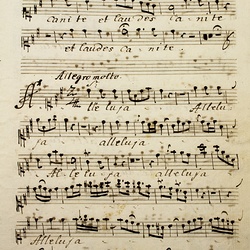 canite et laudes canite
et laudes canite
Allegro molto
Alleluja Allelu
ja alleluja
Alleluja alleluja
Alleluja